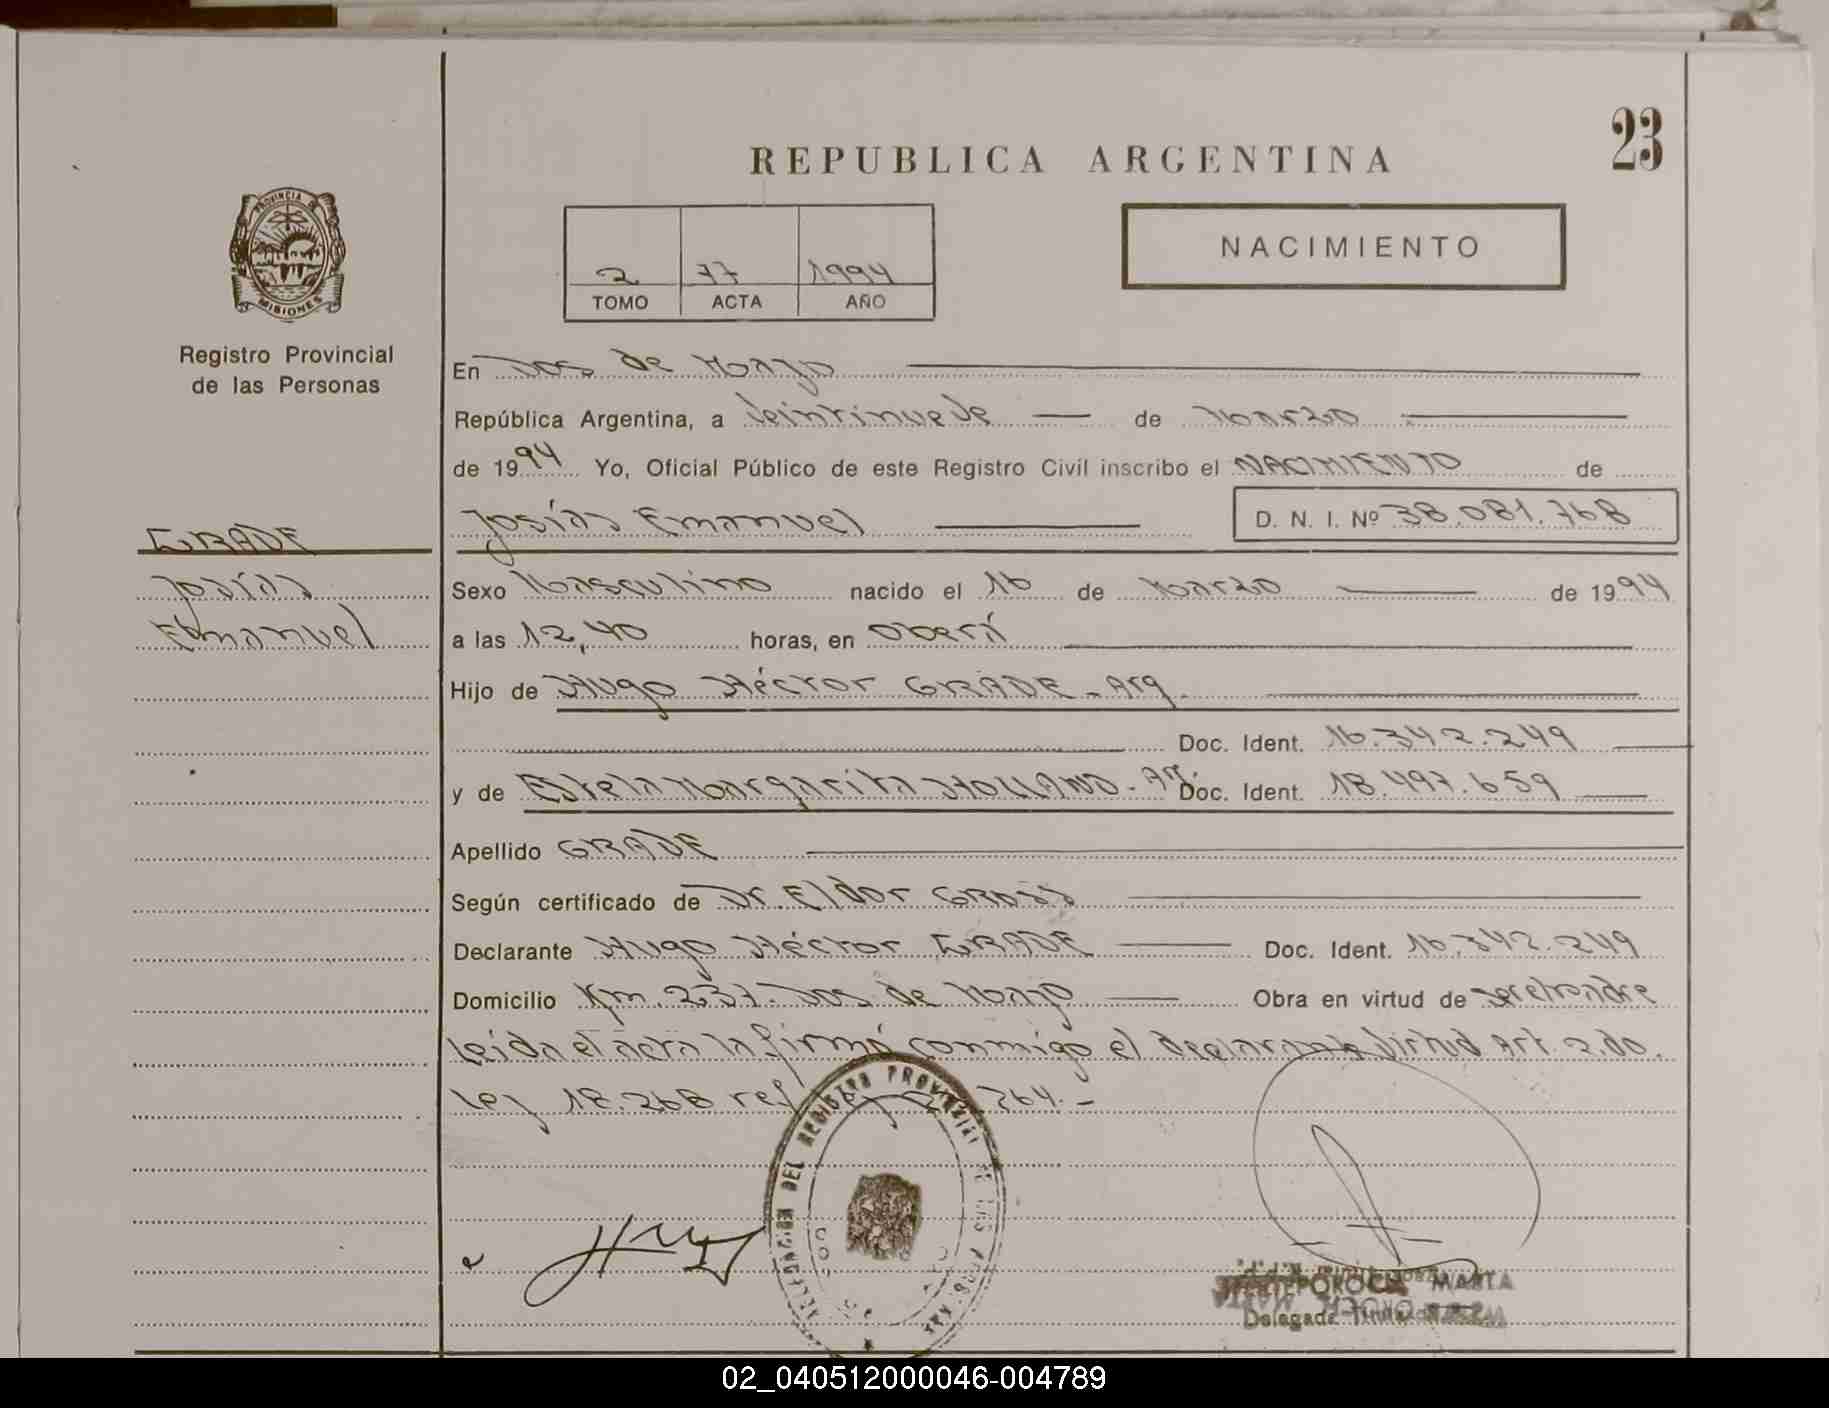 23
REPUBLICA ARGENTINA
PROVINCIA DE
MISIONES
NACIMIENTO
2 77 1994
TOMO ACTA AÑO
Registro Provincial
de las Personas
En Dos de Mayo
República Argentina, a Veintinueve de Marzo
de 1994 Yo, Oficial Público de este Registro Civil inscribo el NACIMIENTO de
Josías Emanuel D. N. I. Nº 38.081.768
GRADE
Josías
Emanuel
Sexo Masculino nacido el 16 de Marzo de 1994
a las 12,40 horas, en Oberá
Hijo de Hugo Héctor GRADE - Arg.
Doc. Ident. 16.342.249
y de Estela Margarita HOLLAND - Arg. Doc. Ident. 18.497.659
Apellido GRADE
Según certificado de Dr. Eldor GROSS
Declarante Hugo Héctor GRADE Doc. Ident. 16.342.249
Domicilio Km. 237. Dos de Mayo Obra en virtud de ser el padre
Leida el acta la firmó conmigo el declarante Virtud Art. 2.do.
Ley 18.268 ref 764.-
DELEGACION DEL REGISTRO PROVINCIAL DE LAS PERSONAS
MARTA
Delegada Titular
02_040512000046-004789